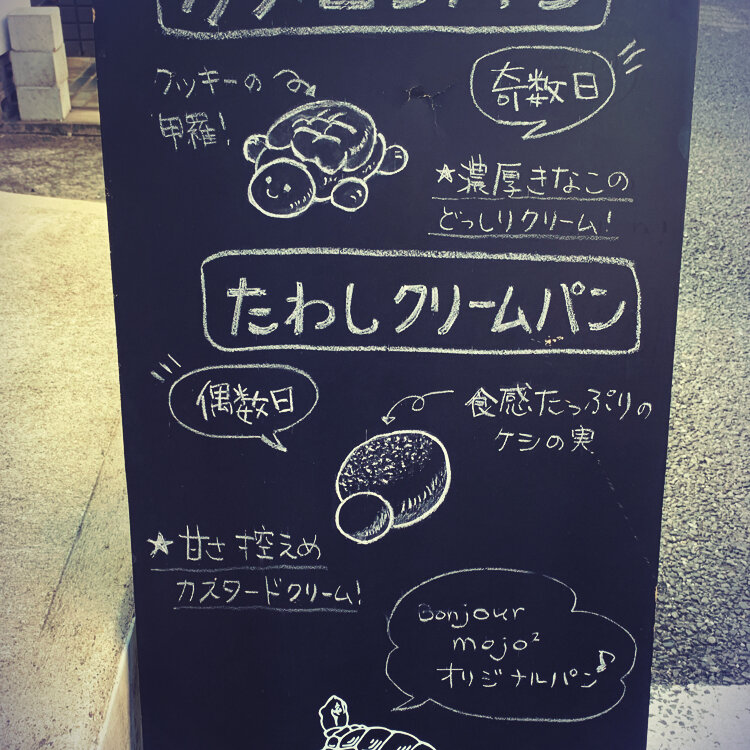 クッキーの
甲羅!
奇数日
★濃厚きなこの
どっしりクリーム!
たわしクリームパン
偶数日
食感たっぷりの
ケシの実
★甘さ控えめ
カスタードクリーム!
Bonjour
mojo²
オリジナルパン♪